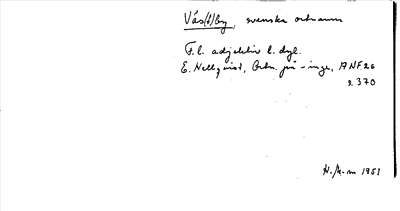 Väs(t)by, svenska ortnamn
F.l. adjektiv l. dyl.
E. Hellquist, Ortn. på -inge, ANF 26
s. 370
H. 1951